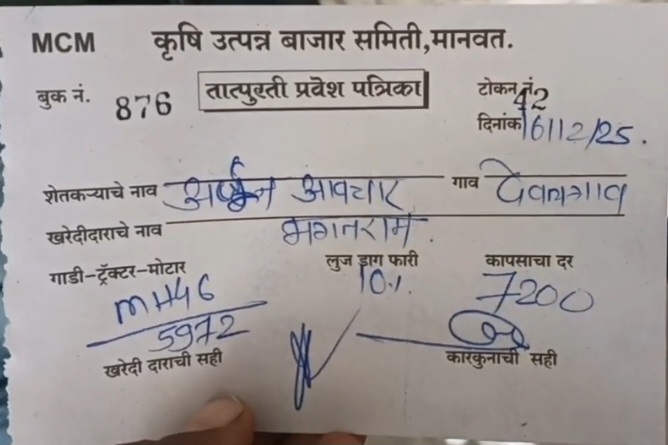 MCM कृषि उत्पन्न बाजार समिती,मानवत.
बुक नं. 876 तात्पुरती प्रवेश पत्रिका टोकन नं. 42
दिनांक 16/12/25.
शेतकऱ्याचे नाव अर्जुन आवचार गाव देवलगाव
खरेदीदाराचे नाव भगतराम
गाडी-ट्रॅक्टर-मोटार लुज डाग फारी कापसाचा दर
MH46 10% 7200
5972
खरेदी दाराची सही कारकुनाची सही